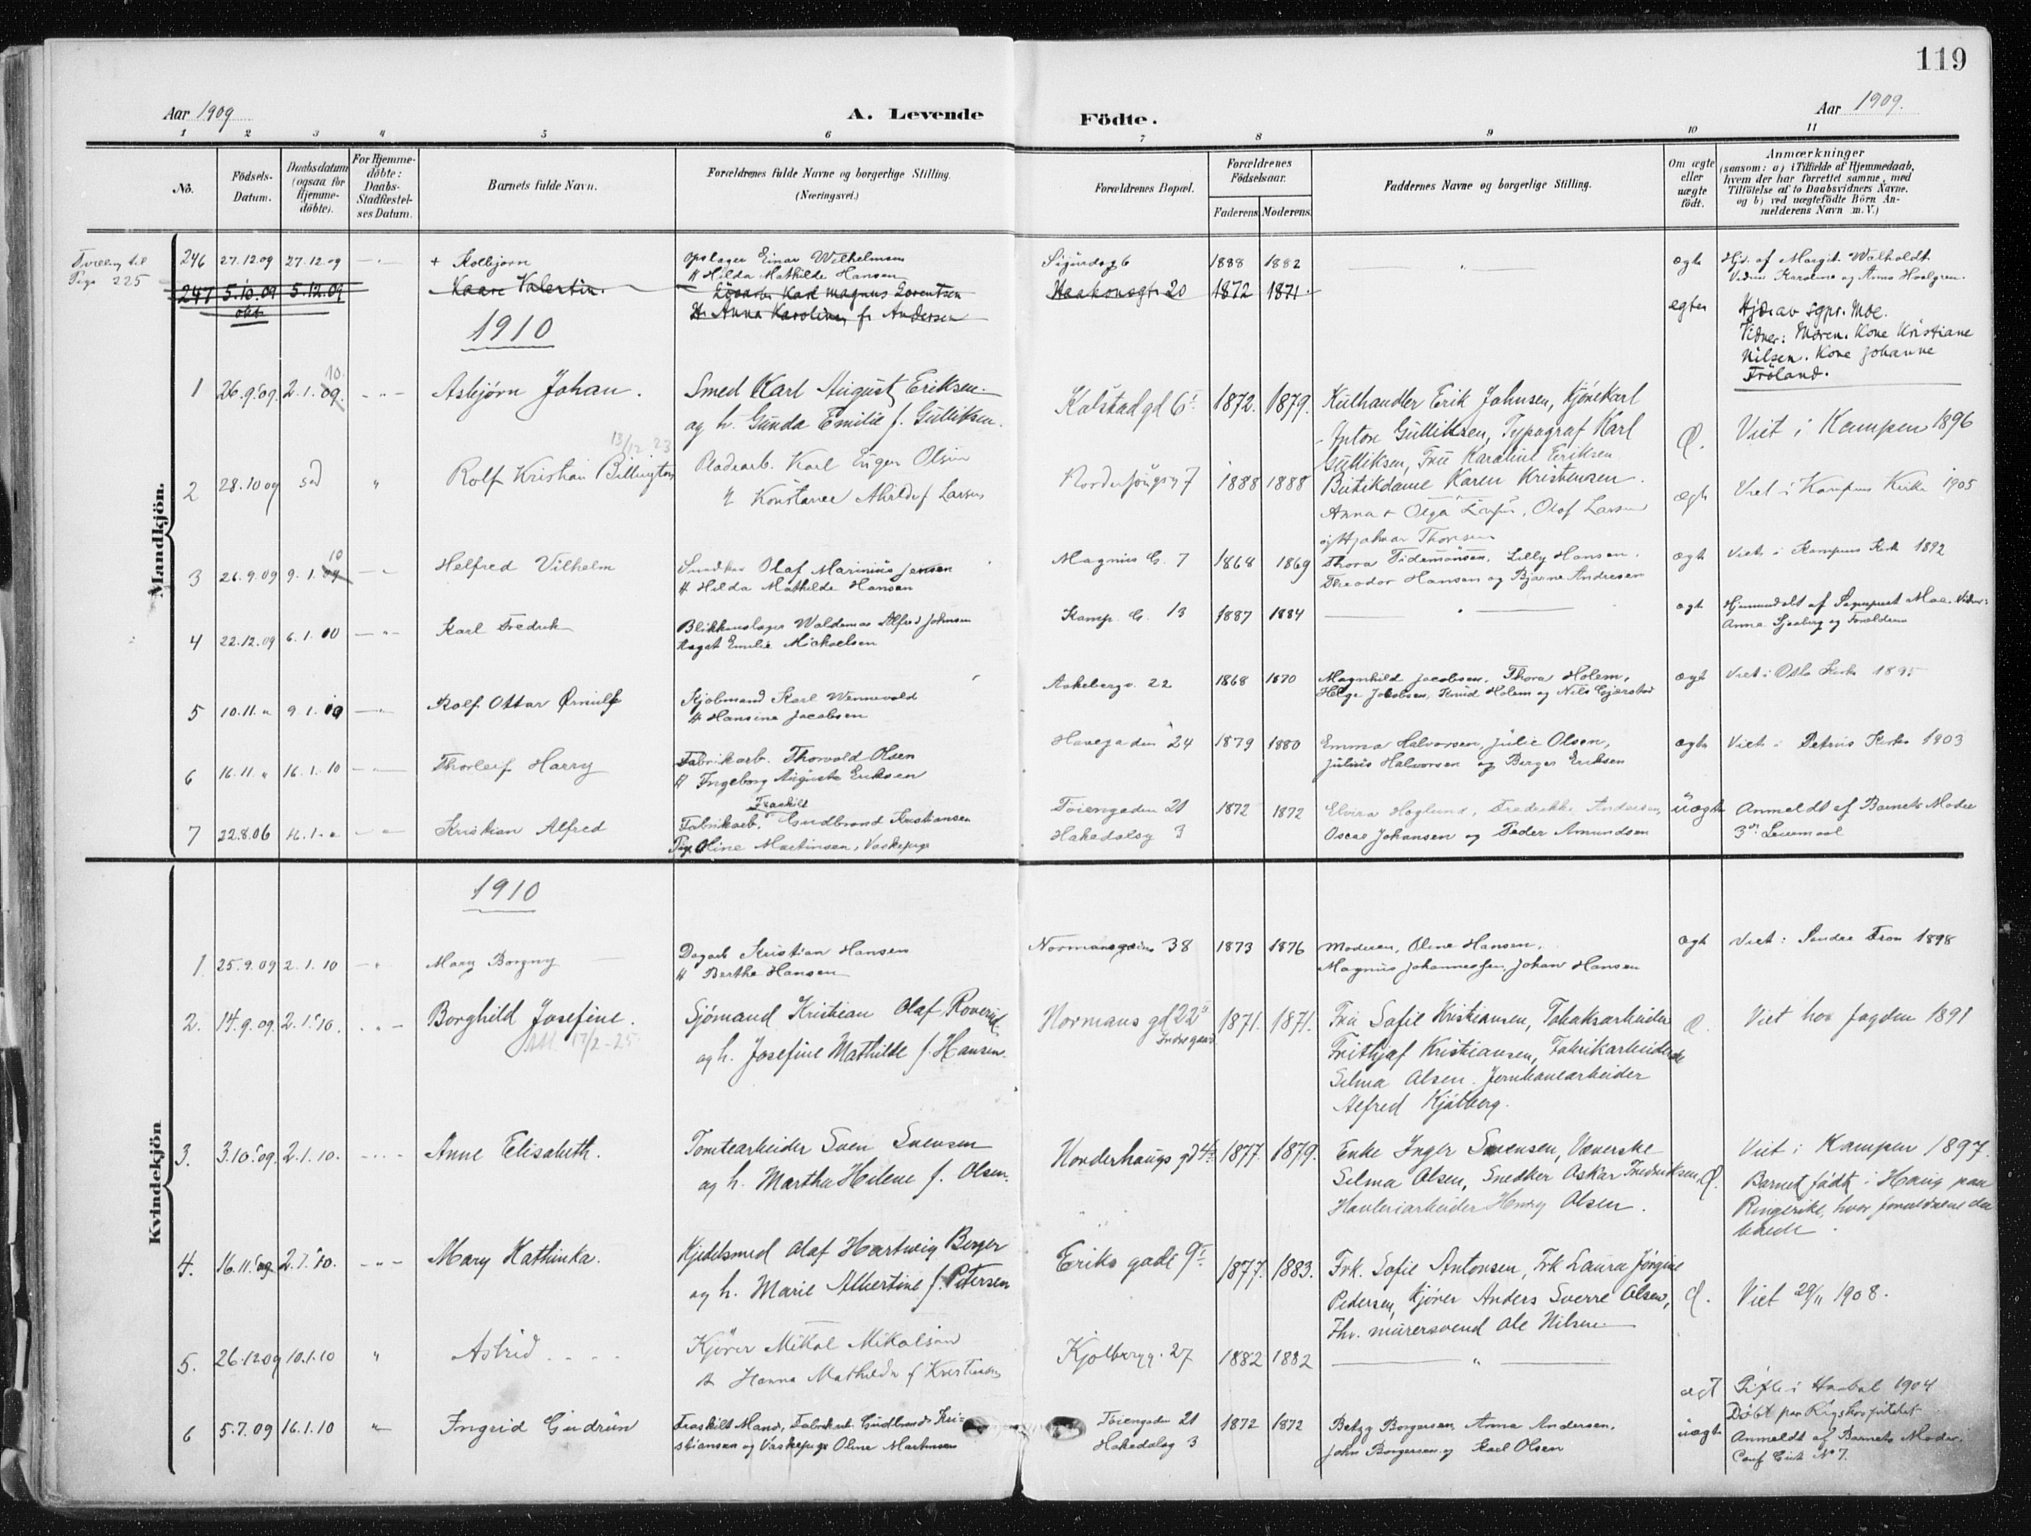 119
Aar 1909
A. Levende Födte.
Aar 1909.
1 2 3 4 5 6 7 8 9 10 11
No.
Födsels-Datum.
Daabsdatum (ogsaa for Hjemme-döbte).
For Hjemme-döbte: Daabs-Stadfæstel-ses Datum.
Barnets fulde Navn.
Forældrenes fulde Navne og borgerlige Stilling. (Næringsvei.)
Forældrenes Bopæl.
Forældrenes Födselsaar.
Faderens Moderens.
Faddernes Navne og borgerlige Stilling.
Om ægte eller uægte födt.
Anmærkninger
(saasom: a) i Tilfælde af Hjemmedaab,
hvem der har forrettet samme, med
Tilföielse af to Daabsvidners Navne.
og b) ved uægtefödte Börn An-
melderens Navn m. V.)
Mandkjön.
Tvilling til
Pige 225
246 27.12.09 27.12.09 + Kolbjørn
Opslager Einar Wilhelmsen
H Hilda Mathilde Hansen
Sigurdsg 6 1888 1882 ægt
Hjd. af Margit Walholdt.
247 5.10.09 5.12.09 Kaare Valentin.
Karl Magnus Lorentsen
H. Anna Karoline f. Andersen
Haakonsgt. 20 1872 1871 ægte
Hjd. av sgpr. Moe.
Vidner: Moren. Kone Kristiane
Nilsen. Kone Johanne
Fröland.
1910
1 26.9.09 2.1.09. 10. Asbjørn Johan.
Smed Karl August Eriksen.
og h. Gunda Emilie f. Gulliksen.
Kalstadgd 6 1872. 1879.
Kulhandler Erik Johnsen, Kjørekarl
Anton Gulliksen, Typograf Karl
Gulliksen, Frue Karoline Eriksen
Viet i Kampen 1896
2 28.10 09 sed " Rolf Kristian Billington
13/12 23
Pladearb. Karl Eugen Olsen
H Konstance Alvilde f Larsen
Norderhougsg 7 1888 1888
Butikdame Karen Kristensen.
Anna + Olga , Olof Larsen
og Hjalmar Thoresen
ægt
Viet i Kampens Kirke 1905
3 26.9.09 9.1.09 10 Helfred Vilhelm
Olaf Marinius Jensen
H Hilda Mathilde Hansen
Magnus G. 7 1868 1869
Thora Tidemansen. Lilly Hansen.
Theodor Hansen og Bjarne Andresen
ægt Viet i Kampens Kirk 1892
4 22.12.09 6.1.10 Karl Fredrik
Blikkenslager Waldemar Alfred Johnsen
Aagot Emilie Michaelsen
Kamp. G. 13 1887 1884 ægt
Hjemmedøbt af Sogneprest Moe. Vidner:
Anna Sjøberg og Forældrene
5 10.11. " 9.1.10 Rolf Ottar Ørnulf
Kjøbmand Karl Wennevold
H Hansine Jacobsen
Aakebergv. 22 1868 1870
Magnhild Jacobsen. Thora Holem,
Helge Jacobsen, Knud Holem og Nils Gjerstad
ægt Viet i Oslo Kirk 1895
6 16.11. " 16.1.10 Thorleif Harry
Fabrikarb. Thorvald Olsen
H Ingeborg Auguste Eriksen
Havegaden 24 1879 1880
Emma Halvorsen, Julie Olsen,
Julius Halvorsen og Berger Eriksen
ægt Viet i Petrus Kirke 1903
7 22.8.06 16.1. " Kristian Alfred
Fraskilt
Fabrikarb. Gudbrand Kristiansen
Pige Oline Martinsen, Vaskepige
Tøiengaden 21
Hakedalsg 3
1872 1872
Elvira Høglund, Fredrikke Andersen,
Oscar Johansen og Peder Amundsen
uægte
Anmeldt af Barnets Moder
3die Leiermaal
Kvindekjön
1910
1 25.9.09 2.1.10 Mary Borgny
Dagarb Kristian Hansen
H Berthe Hansen
Normannsgaden 38 1873 1876
Moderen, Oline Hansen,
Magnus Johannessen, Johan Hansen
ægt Viet i Søndre Fron 1898
2. 14.9.09. 2.1.10. Borghild Josefine.
17/2-25
Sjømand Kristian Olaf Roverud
og h. Josefine Mathilde f. Hansen.
Normans gd 22 1871. 1871.
Frue Sofie Kristiansen, Tobaksarbeider
Frithjof Kristiansen, Fabrikarbeiderske
Selma Olsen. Jernhavearbeider
Alfred Kjølberg.
Viet hos Jagden 1891
3. 3.10.09. 2.1.10. Anne Elisabeth.
Tomtearbeider Sven Svensen
og h. Martha Helene f. Olsen.
Norderhaugs gd 1877. 1879.
Enke Inger Svensen, Væverske
Selma Olsen, Snedker Oskar Fredriksen,
Henry Olsen.
Viet i Kampen 1897.
Barnet født i Haug paa
Ringerike, hvor forældrene da
boede.
4. 16.11.09. 2.1.10. Mary Kathinka.
Kjedelsmed Olaf Hartwig Berger
og h. Marie Albertine f. Petersen
Eriks gade 9 1877. 1883.
Frk. Sofie Antonsen, Frk Laura Jørgine
Pedersen, Kjører Anders Sverre Olsen,
Thv. murersvend Ole Nilsen
Viet 29/11 1908.
5. 26.12.09 10.1.10 " Astrid
Kjører Mikal Mikalsen
H Hanna Mathilde f Kristiansen
Kjølbergg. 27 1882 1882
ægt
1904
Døbt paa Rigshospitalet
6 5.7.09 16.1.10 Ingrid Gudrun
Fraskilt Mand, Fabrikarb Gudbrand Kri-
stiansen og Vaskepige Oline Martinsen
Tøiengaden 21
Hakedalsg 3
1872 1872
Betzy Borgersen, Anna Andersen,
John Borgersen og Karl Olsen
uægt
Anmeldt af Barnets Moder.
Conf Gut No 7.